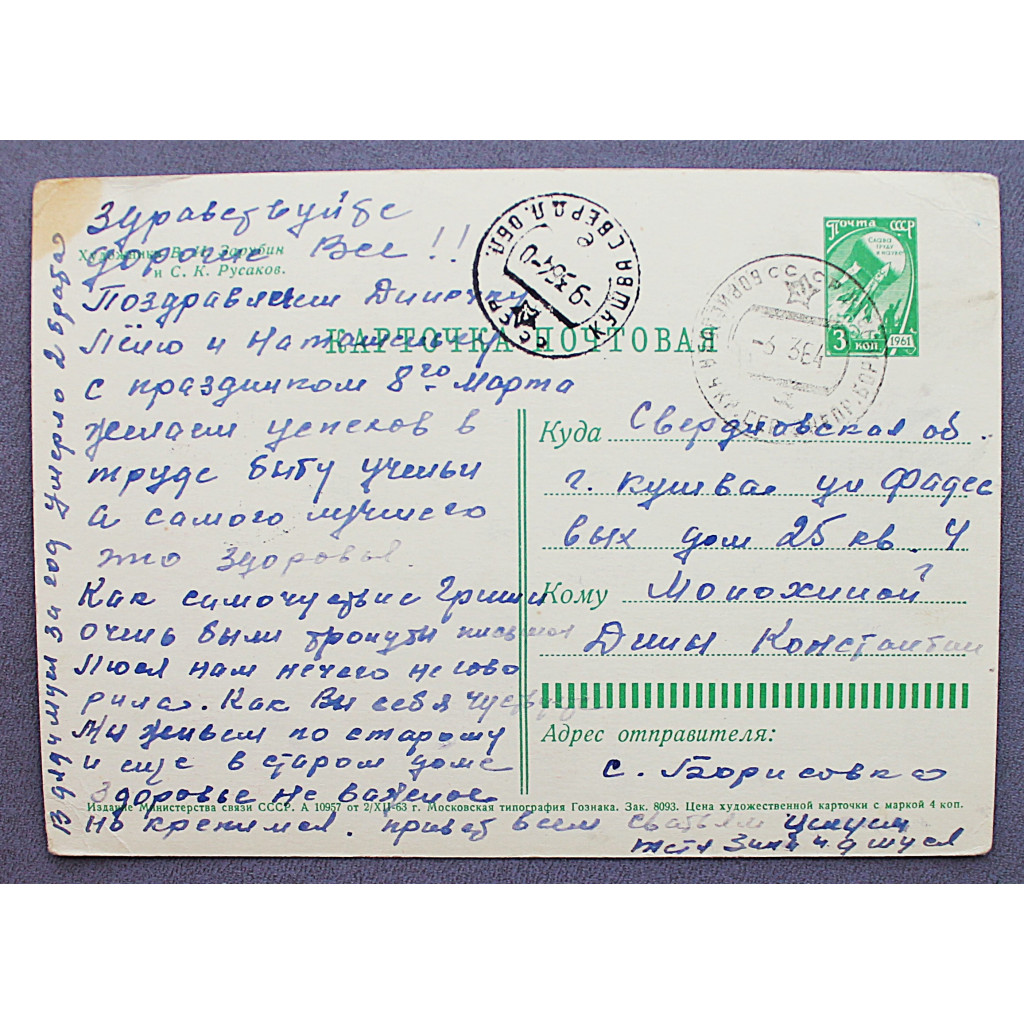 Здравствуйте
дорогие Все!!
Художники В. И. Зарубин
и С. К. Русаков.
Поздравляем Диночку
Лёлю и Наташеньку
с праздником 8го Марта
желаем успехов в
труде быту учёбы
а самого лучшего
это здоровья
Как самочуствие Гриши
очень были тронуты письмом
Люся нам нечего не гово
рила. Как Вы себя чуствуете
Мы живём по старому
и еще в старом доме
Здоровье не важное
но крепимся. привет всем сватьям целуем
тетя Зина и д муся
13 дядя муся за год умерло 2 брата
КАРТОЧКА ПОЧТОВАЯ
СССР
КУШВА СВЕРДЛ. ОБЛ.
-9 3 64-0
е
-6 3 64
Почта СССР
Слава
труду
и науке
3 коп.
1961
Куда Свердловская об.
г. кушва ул Фадее
вых дом 25 кв. 4
Кому Молохиной
Дины Константин
Адрес отправителя:
с. Борисовка
Издание Министерства связи СССР. А 10957 от 2/XII-63 г. Московская типография Гознака. Зак. 8093. Цена художественной карточки с маркой 4 коп.